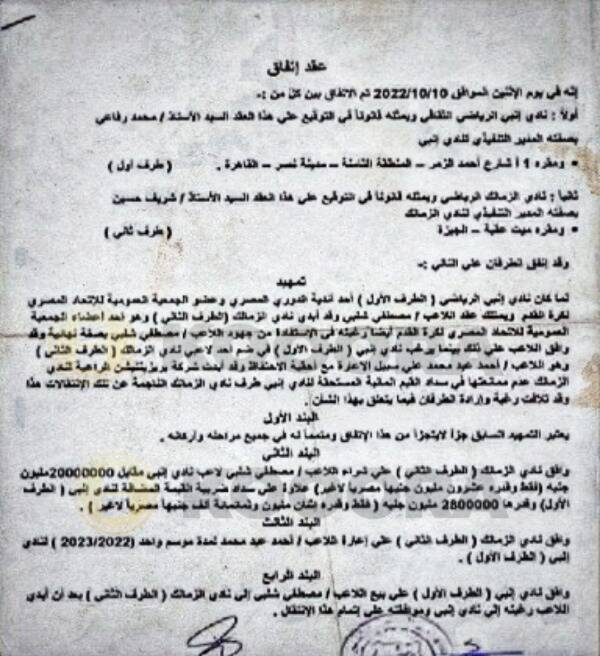 عقد إتفاق
إنه في يوم الإثنين الموافق 2022/10/10 تم الاتفاق بين كل من :-
أولاً : نادي إنبي الرياضي الثقافي ويمثله قانوناً في التوقيع علي هذا العقد السيد الأستاذ / محمد رفاعي
بصفته المدير التنفيذي لنادي إنبي
• ومقره 1 أ شارع أحمد الزمر – المنطقة الثامنة – مدينة نصر – القاهرة . ( طرف أول )
ثانياً : نادي الزمالك الرياضي ويمثله قانوناً في التوقيع علي هذا العقد السيد الأستاذ / شريف حسين
بصفته المدير التنفيذي لنادي الزمالك
• ومقره ميت عقبة – الجيزة ( طرف ثاني )
وقد إتفق الطرفان علي التالي :-
تمهيد
لما كان نادي إنبي الرياضي ( الطرف الأول ) أحد أندية الدوري المصري وعضو الجمعية العمومية للإتحاد المصري
لكرة القدم ويمتلك عقد اللاعب / مصطفي شلبي وقد أبدي نادي الزمالك ( الطرف الثاني ) وهو أحد أعضاء الجمعية
العمومية للاتحاد المصري لكرة القدم أيضا رغبته في الإستفادة من جهود اللاعب / مصطفي شلبي بصفة نهائية وقد
وافق اللاعب علي ذلك بينما يرغب نادي إنبي ( الطرف الأول ) في ضم أحد لاعبي نادي الزمالك ( الطرف الثاني )
وهو اللاعب / أحمد عيد محمد علي سبيل الإعارة مع أحقية الاحتفاظ وقد أبدت شركة بريزينتيشن الراعية لنادي
الزمالك عدم ممانعتها في سداد القيم المالية المستحقة لنادي إنبي طرف نادي الزمالك الناجمة عن تلك الإنتقالات هذا
وقد تلاقت رغبة وإرادة الطرفان فيما يتعلق بهذا الشأن .
البند الأول
يعتبر التمهيد السابق جزأ لايتجزأ من هذا الإتفاق ومتمماً له في جميع مراحله وأركانه .
البند الثاني
وافق نادي الزمالك ( الطرف الثاني ) علي شراء اللاعب / مصطفي شلبي لاعب نادي إنبي مقابل 20000000مليون
جنيه (فقط وقدره عشرون مليون جنيها مصرياً لاغير) علاوة علي سداد ضريبة القيمة المضافة لنادي إنبي ( الطرف
الأول) وقدرها 2800000 مليون جنيه ( فقط وقدره إثنان مليون وثمانمائة ألف جنيهاً مصرياً لاغير ) .
البند الثالث
وافق نادي الزمالك ( الطرف الثاني ) علي إعارة اللاعب / أحمد عيد محمد لمدة موسم واحد (2023/2022 ) لنادي
إنبي ( الطرف الأول ) .
البند الرابع
وافق نادي إنبي ( الطرف الأول ) علي بيع اللاعب / مصطفي شلبي إلي نادي الزمالك ( الطرف الثاني ) بعد أن أبدي
اللاعب رغبته إلي نادي إنبي وموافقته علي إتمام هذا الإنتقال .